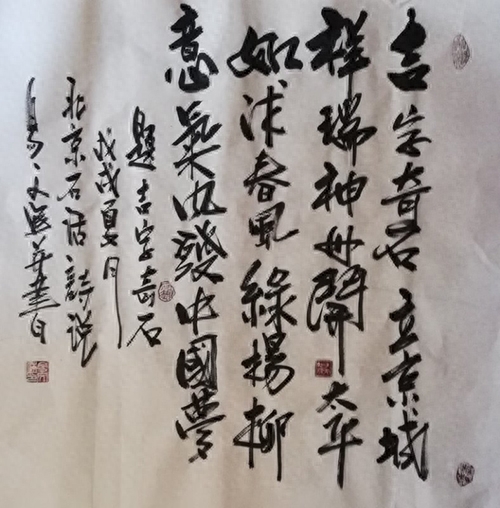 吉字奇石立京城
祥瑞神妙開太平
如沐春風綠楊柳
意氣風發中國夢
題吉字奇石
戊戌夏月
北京石佶詩説
文 并書